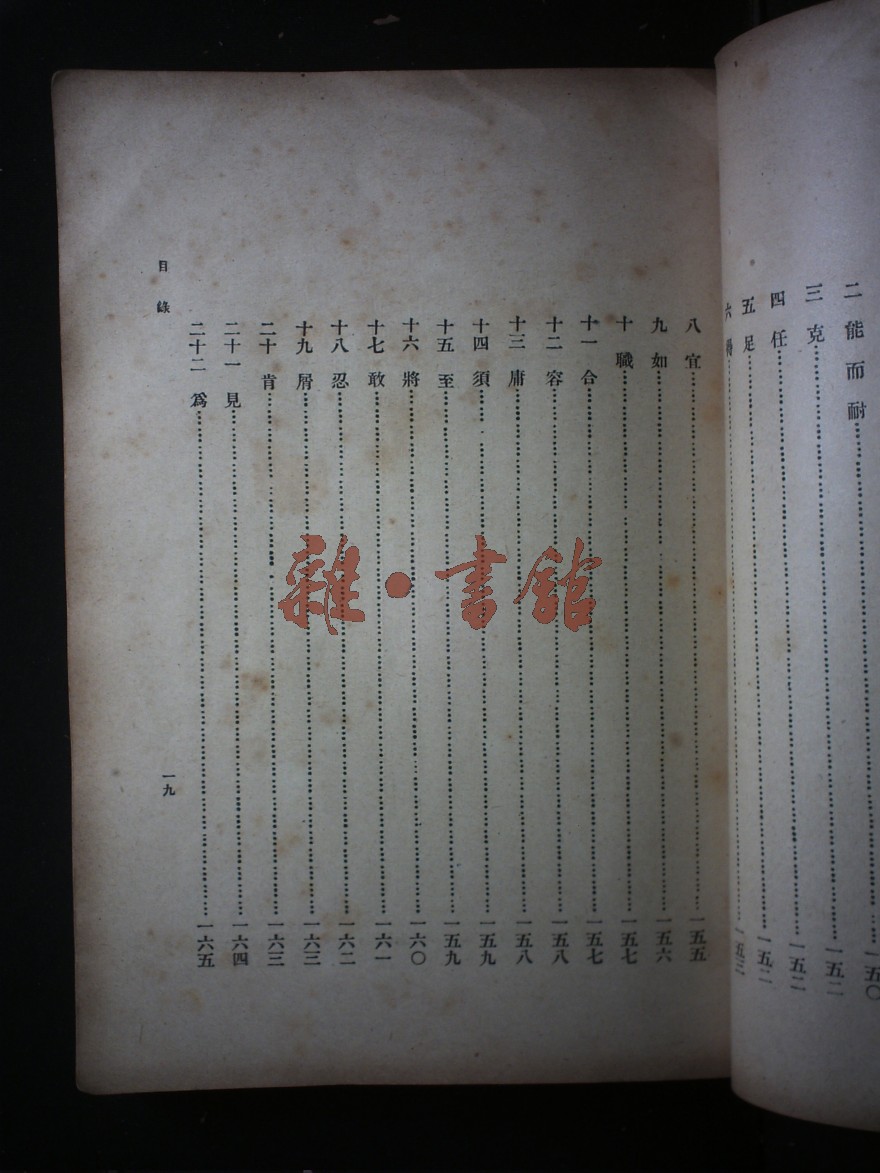 二 能而耐……一五〇
三 克……一五二
四 任……一五二
五 足……一五二
六 ……一五三
八 宜……一五五
九 如……一五六
十 職……一五七
十一 合……一五七
十二 容……一五八
十三 庸……一五八
十四 須……一五九
十五 至……一五九
十六 將……一六〇
十七 敢……一六一
十八 忍……一六二
十九 屑……一六三
二十 肯……一六三
二十一 見……一六四
二十二 爲……一六五
目錄
一九
雜·書館